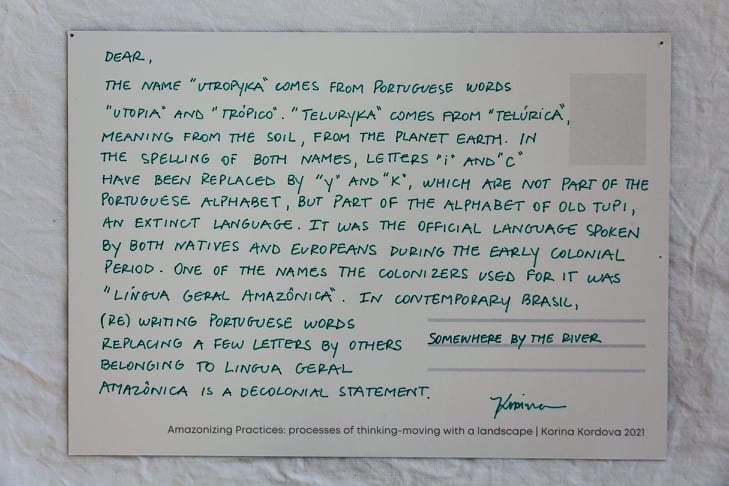 DEAR,
THE NAME "UTROPYKA" COMES FROM PORTUGUESE WORDS
"UTOPIA" AND "TRÓPICO". "TELURYKA" COMES FROM "TELÚRICA",
MEANING FROM THE SOIL, FROM THE PLANET EARTH. IN
THE SPELLING OF BOTH NAMES, LETTERS "i" AND "C"
HAVE BEEN REPLACED BY "Y" AND "K", WHICH ARE NOT PART OF THE
PORTUGUESE ALPHABET, BUT PART OF THE ALPHABET OF OLD TUPI,
AN EXTINCT LANGUAGE. IT WAS THE OFFICIAL LANGUAGE SPOKEN
BY BOTH NATIVES AND EUROPEANS DURING THE EARLY COLONIAL
PERIOD. ONE OF THE NAMES THE COLONIZERS USED FOR IT WAS
"LÍNGUA GERAL AMAZÔNICA". IN CONTEMPORARY BRASIL,
(RE) WRITING PORTUGUESE WORDS
REPLACING A FEW LETTERS BY OTHERS
BELONGING TO LINGUA GERAL
AMAZÔNICA IS A DECOLONIAL STATEMENT.
SOMEWHERE BY THE RIVER
Korina
Amazonizing Practices: processes of thinking-moving with a landscape | Korina Kordova 2021